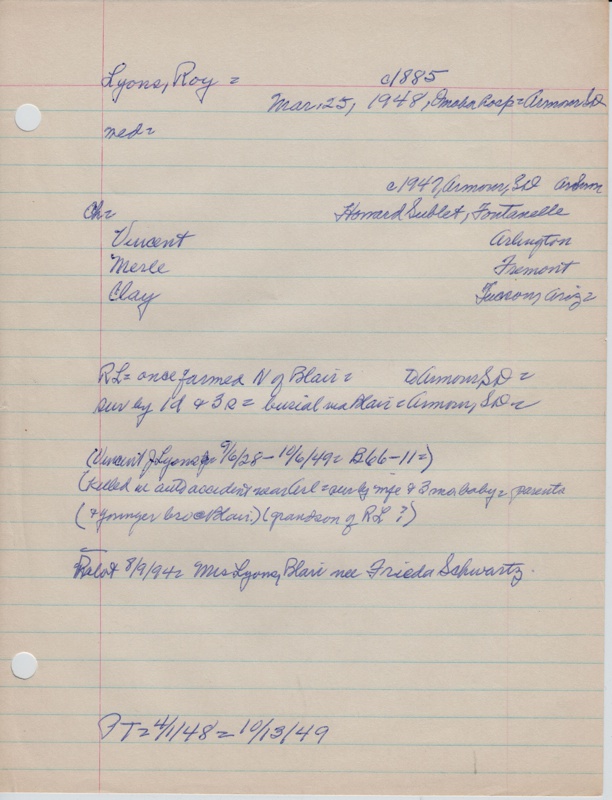 Lyons, Roy = c1885
Mar. 25, 1948, Omaha hosp = Armour SD
med =
c1947, Armour, SD
Ch = Howard Sublet, Fontanelle
Vincent Arlington
Merle Fremont
Clay Tucson, Ariz =
RL = once farmed N of Blair = to Armour SD =
sur by 1d & 3s = burial via Blair = Armour, SD =
(Vincent J Lyons Jr 9/6/28 - 10/6/49 = B66-11 =)
(Killed in auto accident near Arl = sur by wife & 3 mo. baby = parents
(& younger bro Blair) (grandson of RL ?)
8/9/94 = Mrs Lyons, Blair nee Frieda Schwartz.
PT = 4/1/48 = 10/13/49